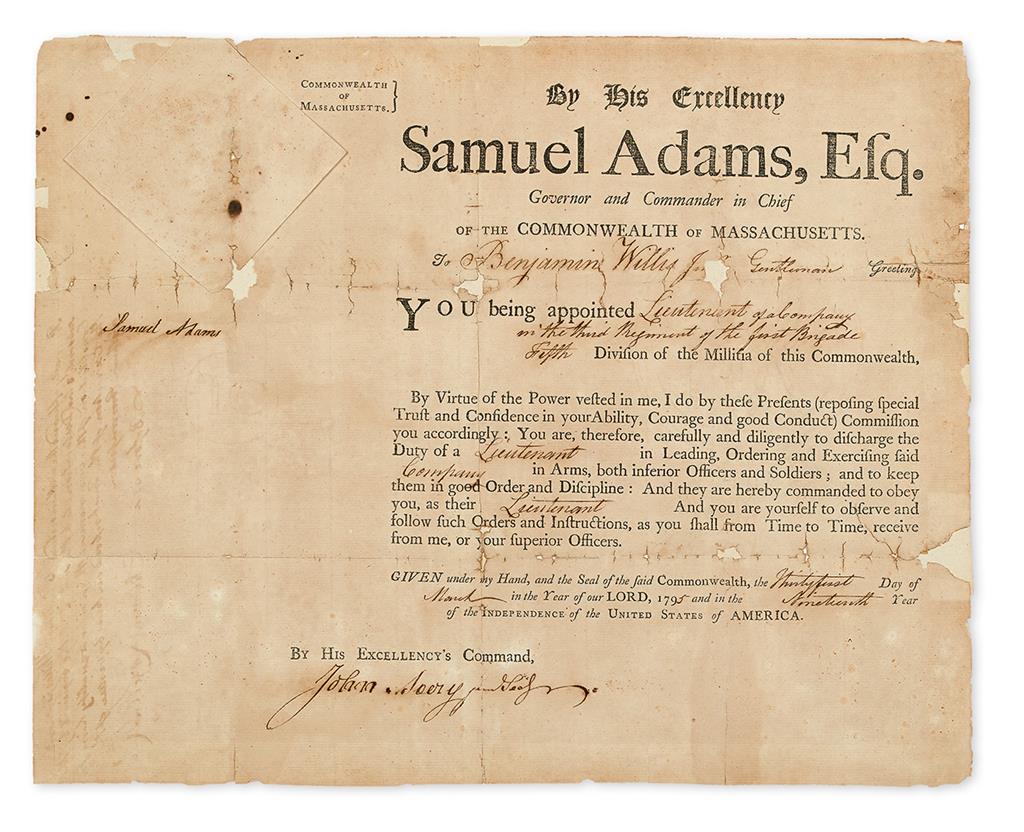 COMMONWEALTH
OF
MASSACHUSETTS.}
By His Excellency
Samuel Adams, Eſq.
Governor and Commander in Chief
OF THE COMMONWEALTH OF MASSACHUSETTS.
To Benjamin Willis Junr Gentleman Greeting
Samuel Adams
YOU being appointed Lieutenant of a Company
in the third Regiment of the first Brigade
Fifth Diviſion of the Millitia of this Commonwealth,
By Virtue of the Power veſted in me, I do by theſe Preſents (repoſing ſpecial
Truſt and Confidence in your Ability, Courage and good Conduct) Commiſſion
you accordingly: You are, therefore, carefully and diligently to diſcharge the
Duty of a Lieutenant in Leading, Ordering and Exerciſing ſaid
Company in Arms, both inferior Officers and Soldiers; and to keep
them in good Order and Diſcipline: And they are hereby commanded to obey
you, as their Lieutenant And you are yourſelf to obſerve and
follow ſuch Orders and Inſtructions, as you ſhall from Time to Time, receive
from me, or your ſuperior Officers.
GIVEN under my Hand, and the Seal of the ſaid Commonwealth, the Thirtyfirst Day of
March in the Year of our LORD, 1795 and in the Nineteenth Year
of the INDEPENDENCE of the UNITED STATES of AMERICA.
BY HIS EXCELLENCY'S Command,
John Avery